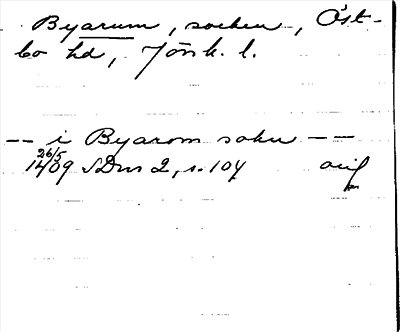 Byarum, socken, Öst-
bo hd, Jönk. l.
-- i Byarom sokn --
26/5
1409 SDns 2, s. 104 orig